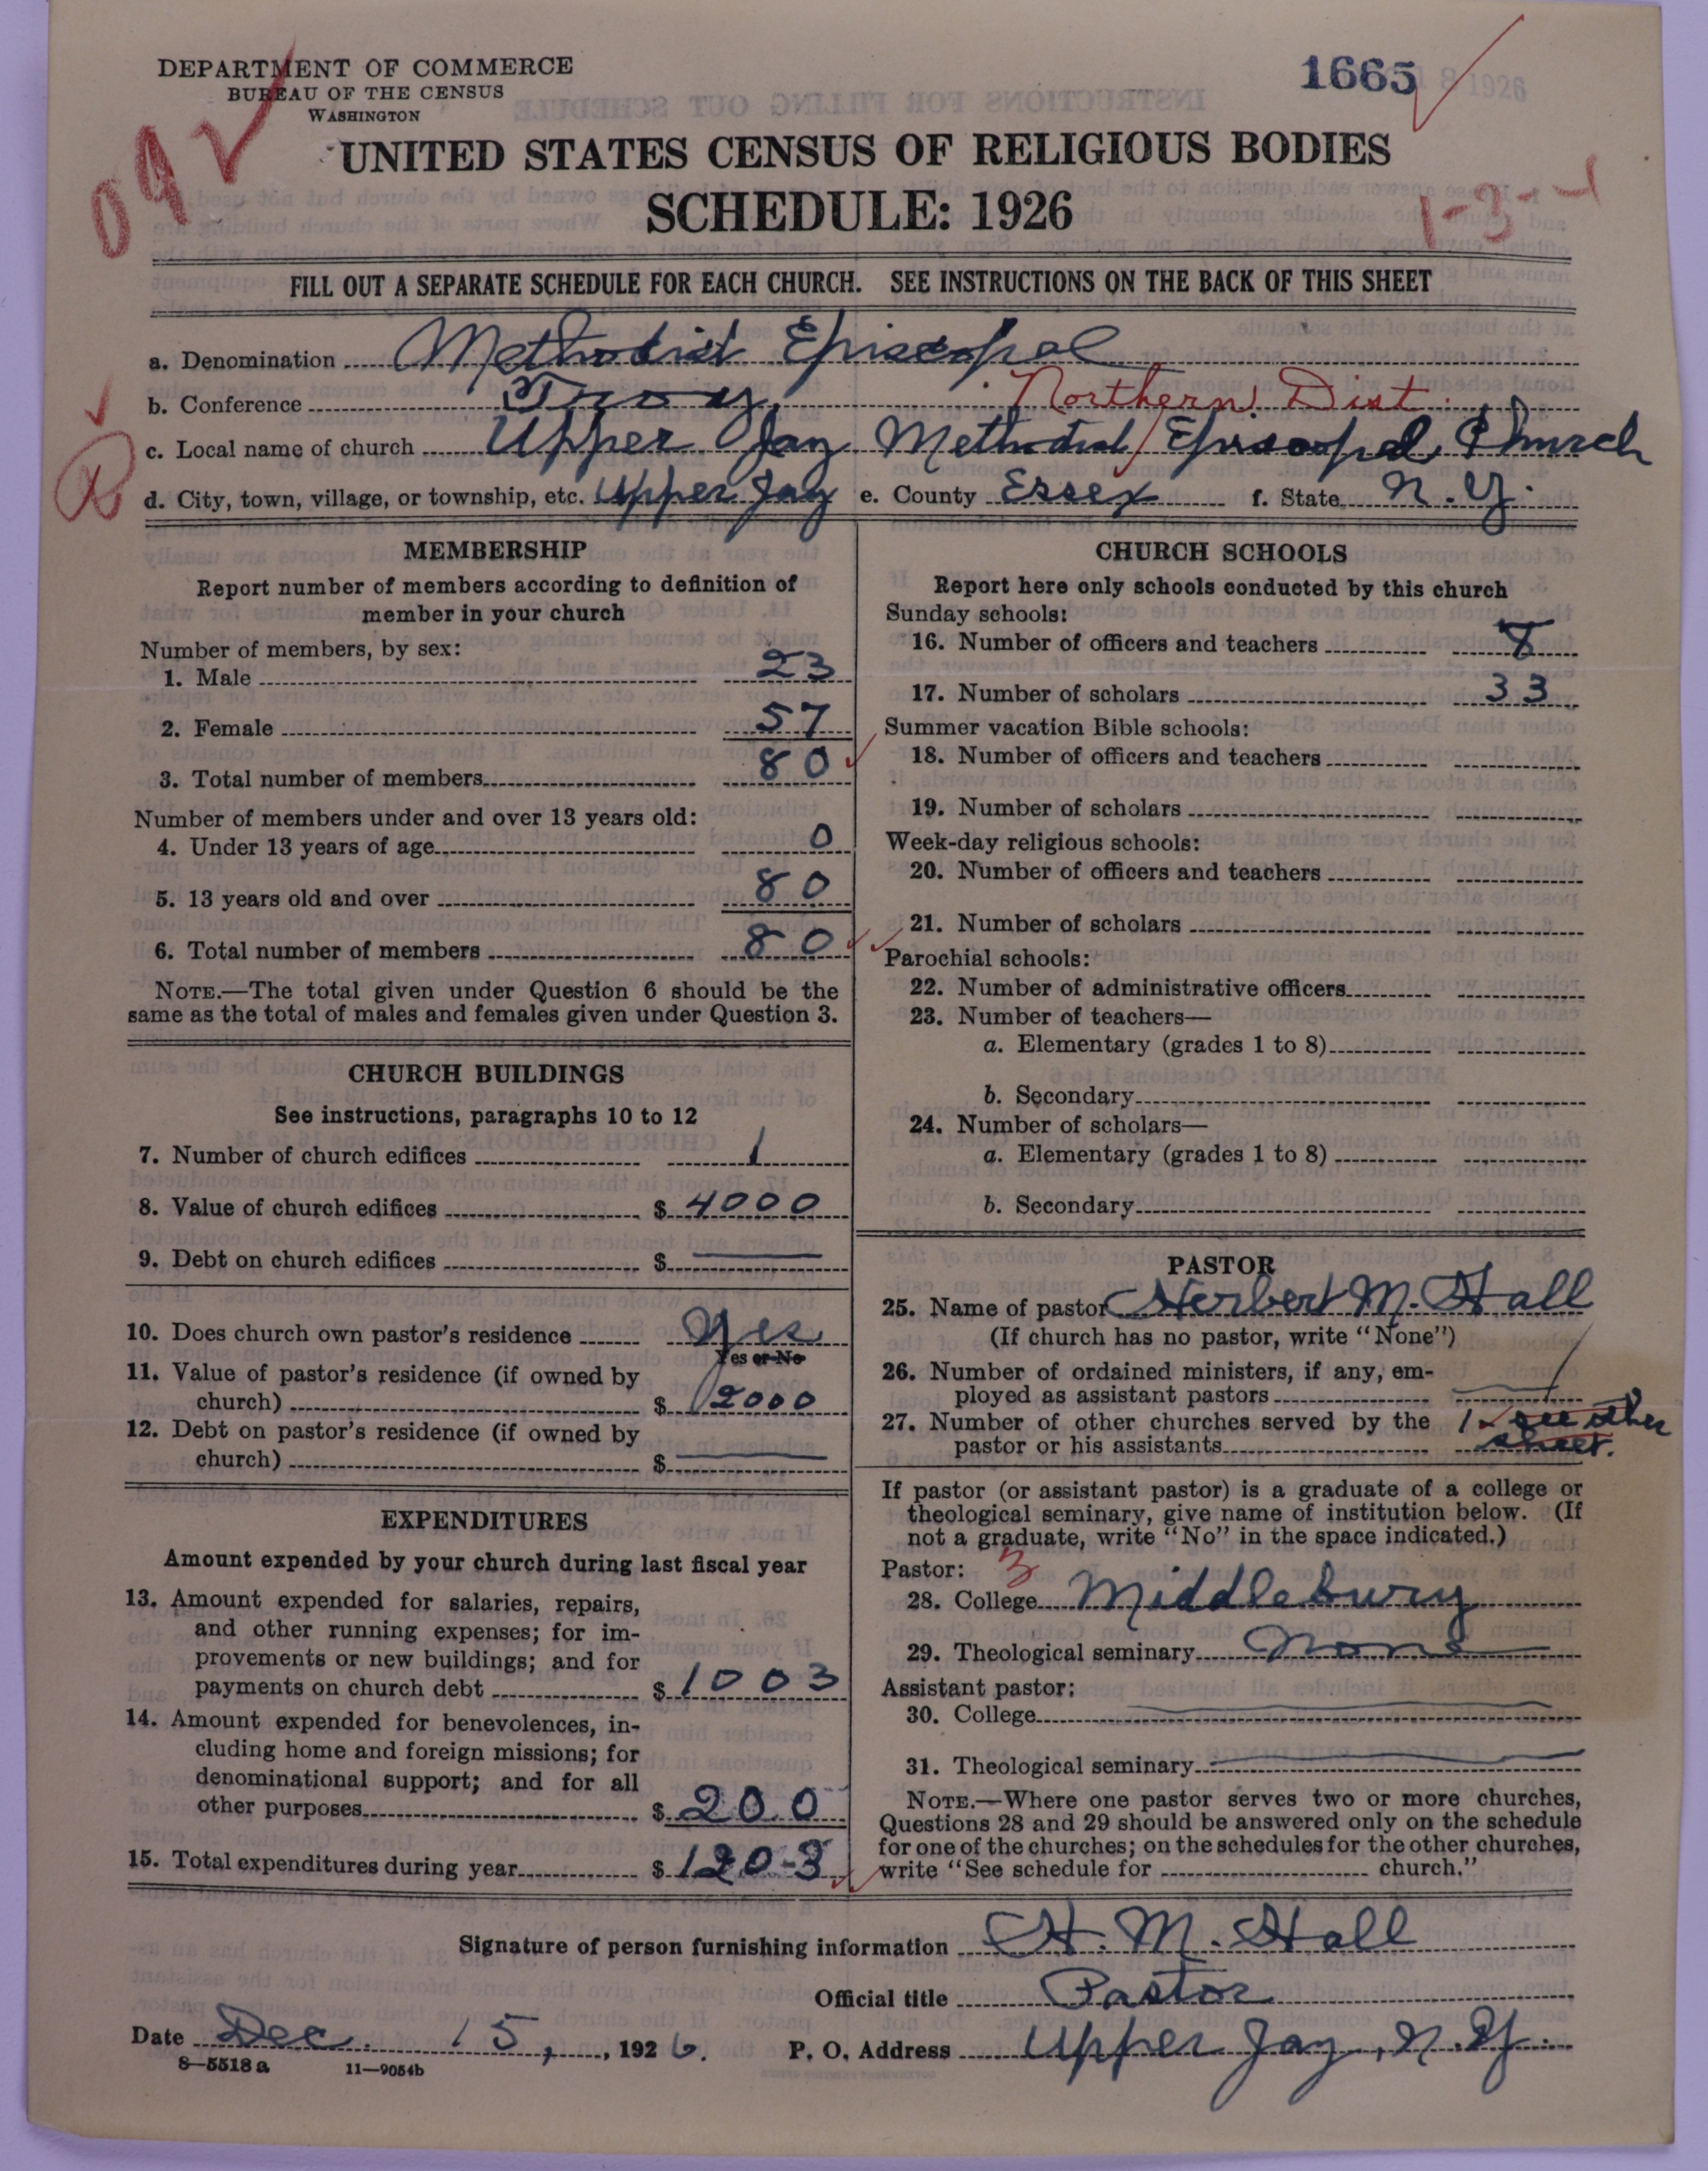 DEPARTMENT OF COMMERCE
BUREAU OF THE CENSUS
WASHINGTON
1665
8 1926
09
UNITED STATES CENSUS OF RELIGIOUS BODIES
SCHEDULE: 1926
1-3-
FILL OUT A SEPARATE SCHEDULE FOR EACH CHURCH. SEE INSTRUCTIONS ON THE BACK OF THIS SHEET
a. Denomination Methodist Episcopal
b. Conference Troy Northern Dist.
c. Local name of church Upper Jay Methodist Episcopal Church
d. City, town, village, or township, etc. Upper Jay e. County Essex f. State N.Y.
MEMBERSHIP
Report number of members according to definition of
member in your church
Number of members, by sex:
1. Male 23
2. Female 57
3. Total number of members 80
Number of members under and over 13 years old:
4. Under 13 years of age 0
5. 13 years old and over 80
6. Total number of members 80
NOTE.—The total given under Question 6 should be the
same as the total of males and females given under Question 3.
CHURCH BUILDINGS
See instructions, paragraphs 10 to 12
7. Number of church edifices 1
8. Value of church edifices $ 4000
9. Debt on church edifices $ —
10. Does church own pastor's residence Yes
Yes or No
11. Value of pastor's residence (if owned by
church) $ 2000
12. Debt on pastor's residence (if owned by
church) $ —
EXPENDITURES
Amount expended by your church during last fiscal year
13. Amount expended for salaries, repairs,
and other running expenses; for im-
provements or new buildings; and for
payments on church debt $ 1003
14. Amount expended for benevolences, in-
cluding home and foreign missions; for
denominational support; and for all
other purposes $ 200
15. Total expenditures during year $ 1203
CHURCH SCHOOLS
Report here only schools conducted by this church
Sunday schools:
16. Number of officers and teachers 8
17. Number of scholars 33
Summer vacation Bible schools:
18. Number of officers and teachers
19. Number of scholars
Week-day religious schools:
20. Number of officers and teachers
21. Number of scholars
Parochial schools:
22. Number of administrative officers
23. Number of teachers—
a. Elementary (grades 1 to 8)
b. Secondary
24. Number of scholars—
a. Elementary (grades 1 to 8)
b. Secondary
PASTOR
25. Name of pastor Herbert M. Hall
(If church has no pastor, write "None")
26. Number of ordained ministers, if any, em-
ployed as assistant pastors —
27. Number of other churches served by the 1 see other
pastor or his assistants sheet.
If pastor (or assistant pastor) is a graduate of a college or
theological seminary, give name of institution below. (If
not a graduate, write "No" in the space indicated.)
Pastor: 3
28. College Middlebury
29. Theological seminary None
Assistant pastor:
30. College —
31. Theological seminary —
NOTE.—Where one pastor serves two or more churches,
Questions 28 and 29 should be answered only on the schedule
for one of the churches; on the schedules for the other churches,
write "See schedule for church."
Signature of person furnishing information H. M. Hall
Official title Pastor
Date Dec. 15, 1926. P. O. Address Upper Jay, N.Y.
8—5518 a 11—9054b